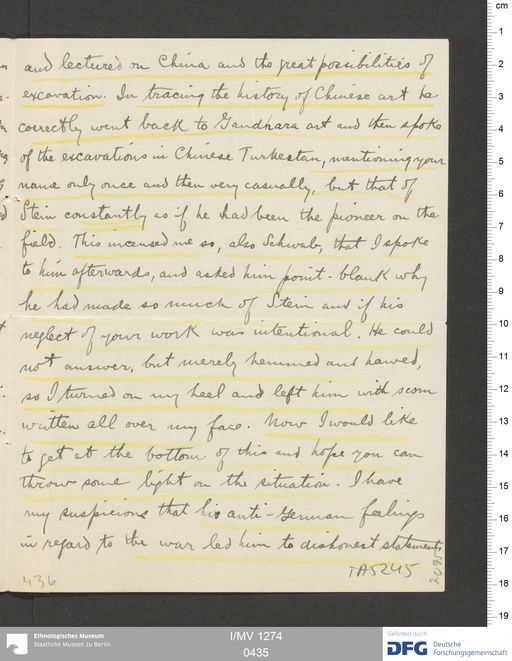 and lectured on China and the great possibilities of
excavation. In tracing the history of Chinese art he
correctly went back to Gandhara art and then spoke
of the excavations in Chinese Turkestan, mentioning your
name only once and then very casually, but that of
Stein constantly as if he had been the pioneer on the
field. This incensed me so, also Schwab, that I spoke
to him afterwards, and asked him point-blank why
he had made so much of Stein and if his
neglect of your work was intentional. He could
not answer, but merely hemmed and hawed,
so I turned on my heel and left him with scorn
written all over my face. Now I would like
to get at the bottom of this and hope you can
throw some light on the situation. I have
my suspicions that his anti-German feelings
in regard to the war led him to dishonest statements
436
TA5245
I/MV 1274
0435
Ethnologisches Museum
Staatliche Museen zu Berlin
Gefördert durch
DFG Deutsche
Forschungsgemeinschaft
cm
1
2
3
4
5
6
7
8
9
10
11
12
13
14
15
16
17
18
19